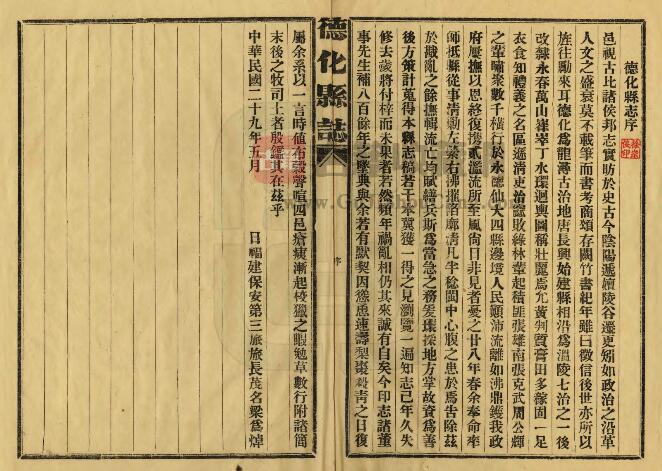 德化縣志序
邑視古比諸侯邦志實昉於史古今陰陽遞嬗陵谷遷更矧如政治之沿革
人文之盛衰莫不載筆而書考商頌存闕竹書紀年雖曰徵信後世亦所以
旌往勵來耳德化為龍潯古治地唐長興始建縣相沿為溫陵七治之一後
改隸永春萬山崔崒丁水環迴輿圖稱壯麗焉允黃判質膏田多稼固一足
衣食知禮義之名區遜清吏治窳敗綠林羣起積匪張雄南張克武周公輝
之輩嘯聚數千橫行於永德仙大四縣邊境人民顛沛流離如沸鼎鑊我政
府屢撫以恩終復攜貳溫流所至風尚日非見者憂之廿八年春余奉命率
師抵縣從事清勦左縈右拂摧陷廓清凡半稔閩中心腹之患於焉告除茲
於戡亂之餘撫輯流亡均賦繕兵斯為當急之務爰環採地方掌故資為善
後方策計蒐得本縣志稿若干本冀獲一得之見瀏覽一遍知志已年久失
修去歲將付梓而未果者若然頻年禍亂相仍其來誠有自矣今印志諸董
事先生補八百餘年之墜典與余若有默契因慫恿速壽梨棗殺青之日復
德化縣誌
序
屬余系以一言時值布穀聲喧四邑瘡痍漸起校獵之暇勉草數行附諸簡
末後之牧司土者殷鑑其在茲乎
中華民國二十九年五月　日福建保安第三旅旅長茂名梁為焯